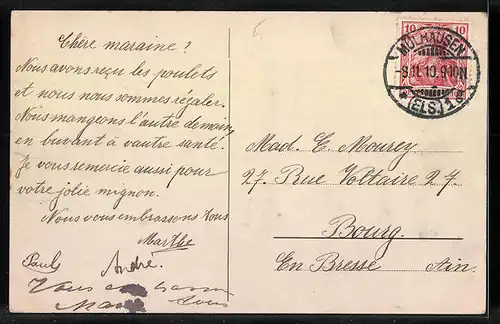 Chère maraine?
Nous avons reçu les poulets
et nous nous sommes régaler.
Nous mangeons l'autre demain,
en buvant à vautre santé.
Je vous remercie aussi pour
votre jolie mignon.
Nous vous embrassons tous
Marthe
Paul André.
Vous
tous
10 10
MÜLHAUSEN
9.11.10.9-10N
* (ELS.) 1 g
Mad. E. Mourey
27. Rue Voltaire 27.
Bourg.
En Bresse Ain.